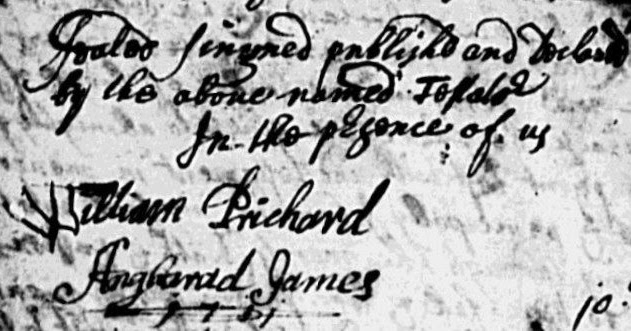 Sealed sinyned publisht and declared
by the above named Testator
In the presence of us
William Prichard
Angharad James
jo: